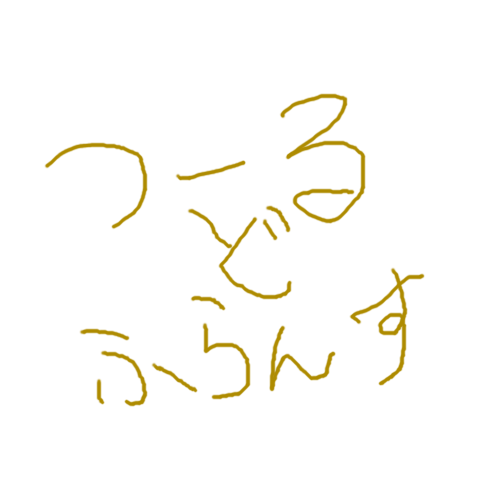 つーる
ど
ふらんす